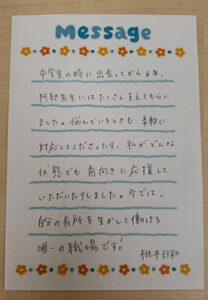 Message
中学生の時に出会ってから6年、
阿部先生にはたくさん支えてもらい
ました。悩んでいるときも 柔軟に
対応してくださったり、私がどんな
状態でも前向きに応援して
いただいたりしました。今では、
自分の長所を生かして働ける
唯一の職場です!